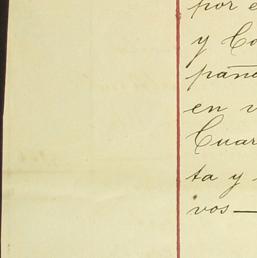 por e
y Co
pañ
en v
Cuar
ta y
vos—